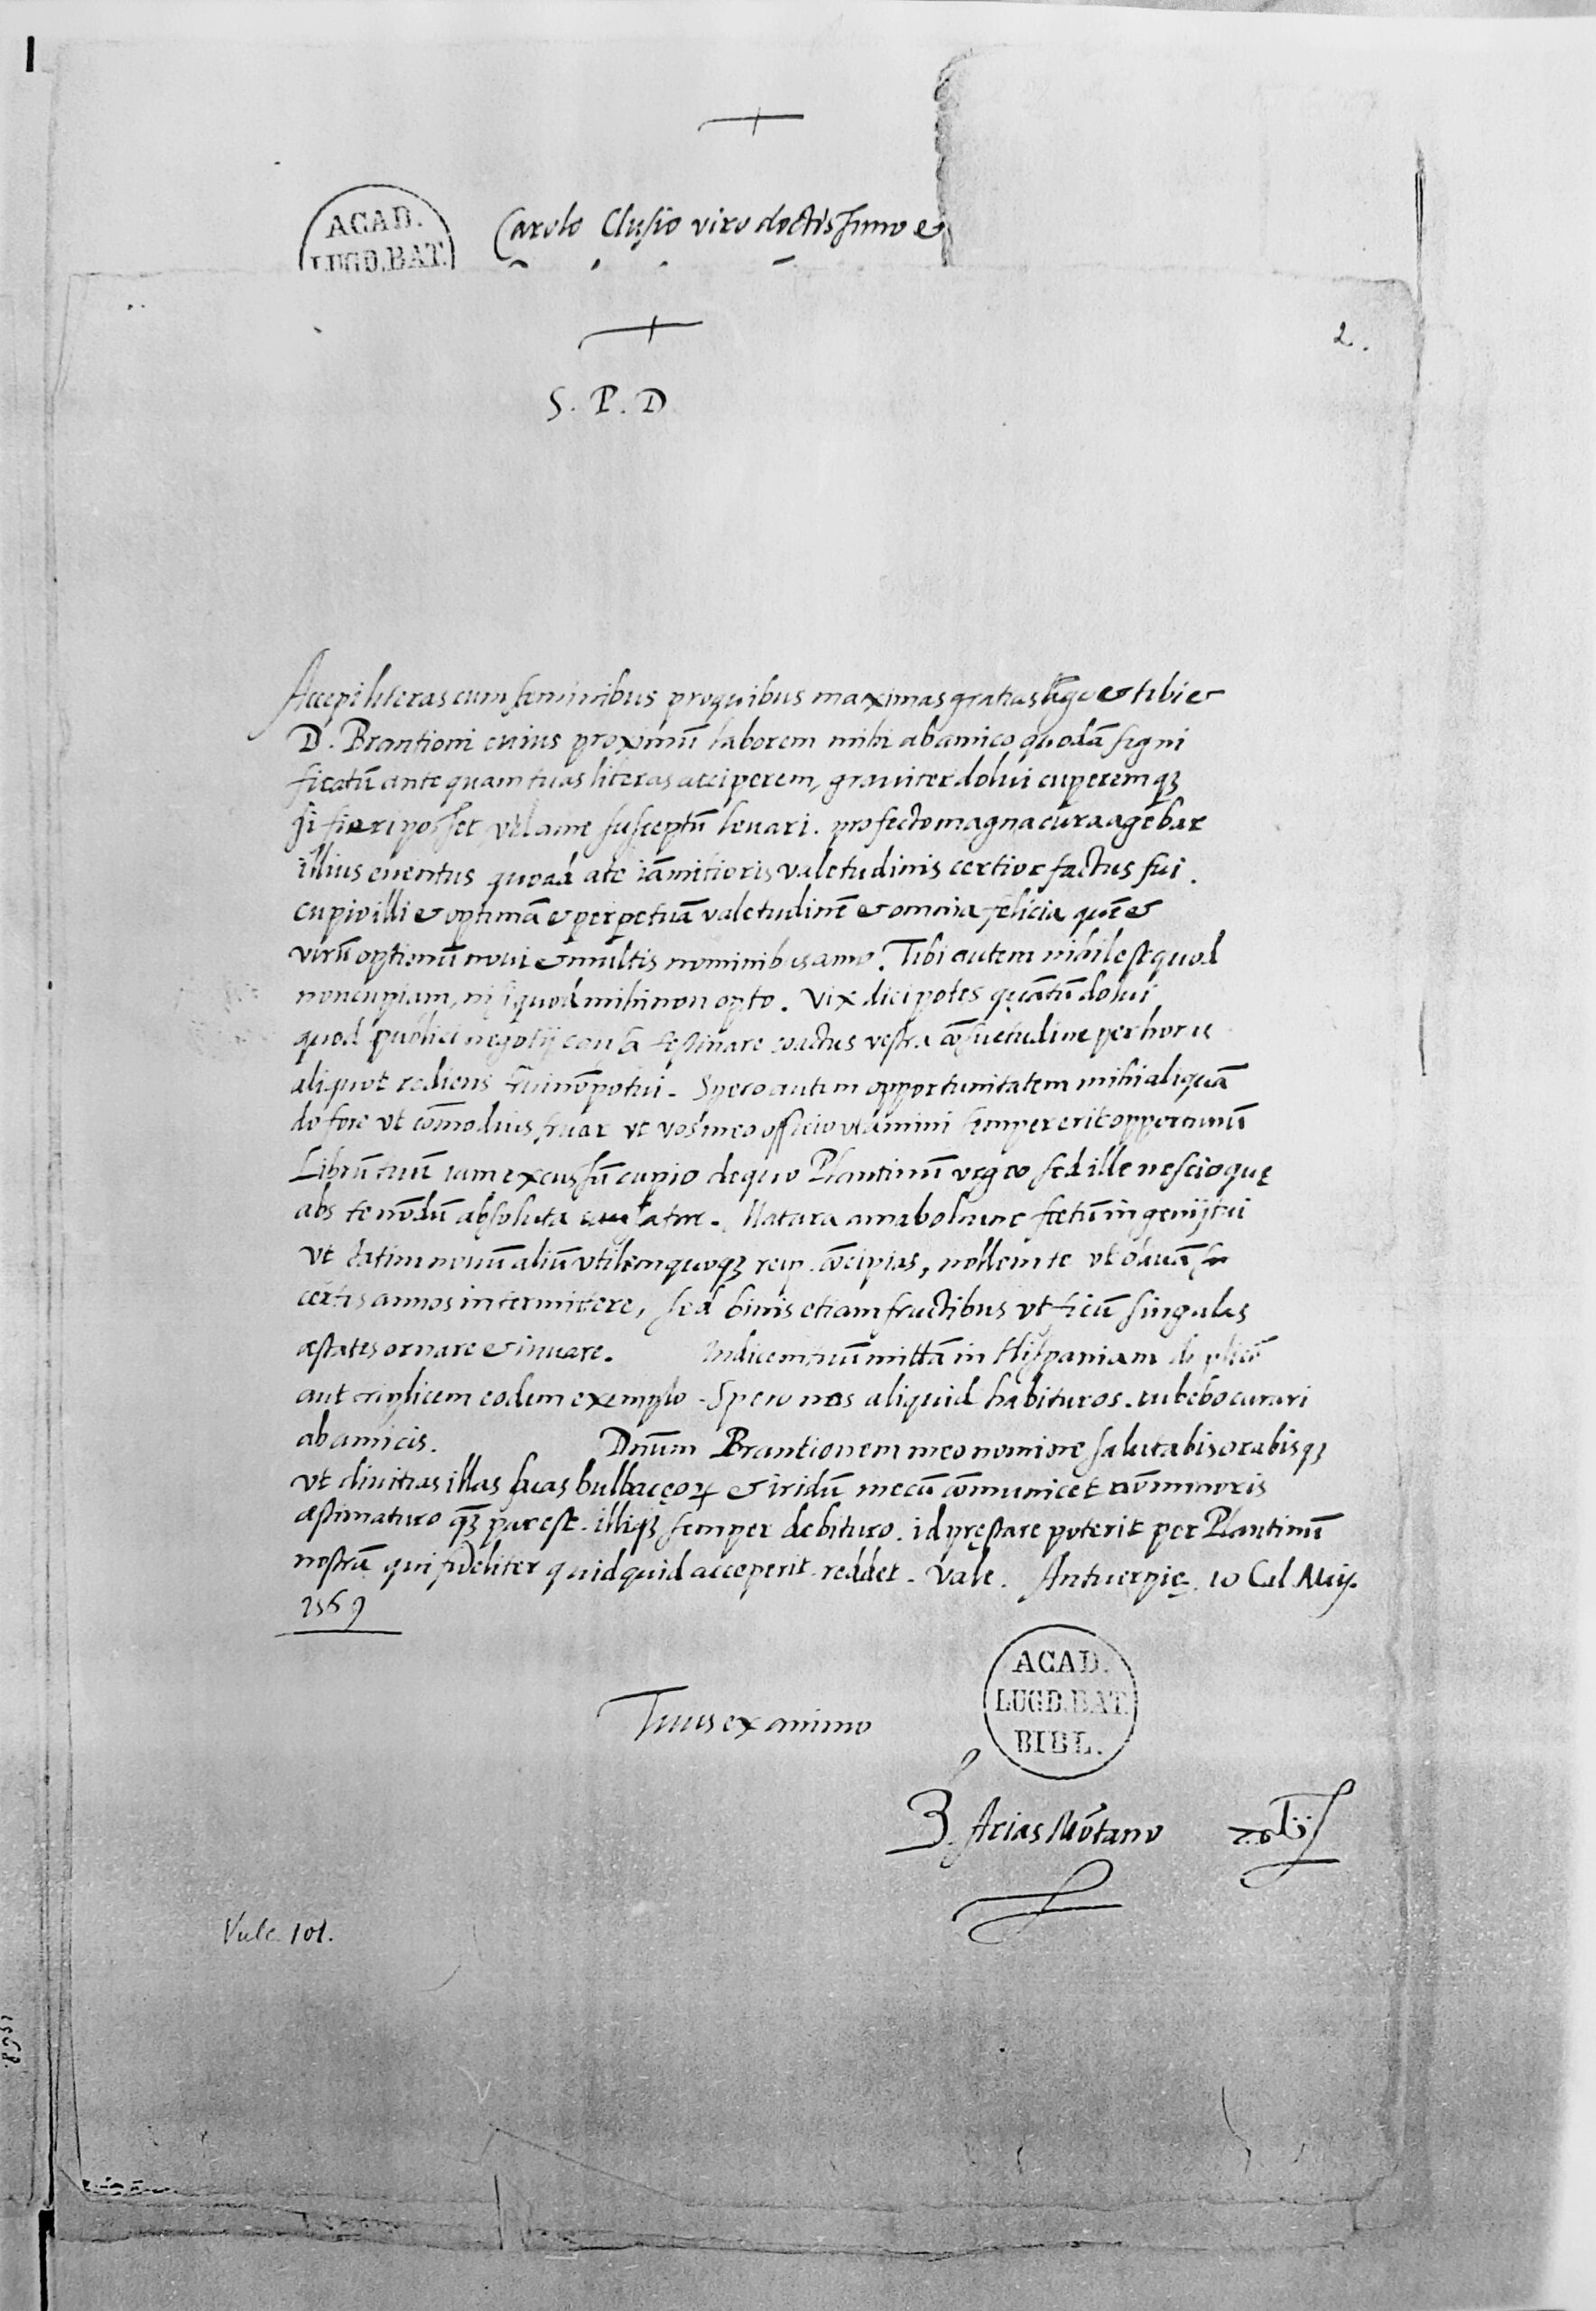 ACAD.
LUGD.BAT.
Carolo Clusio viro doctissimo et
2.
S. P. D
Accepi literas cum seminibus pro quibus maximas gratias ago et tibi et
D. Brantioni cuius proximū laborem mihi ab amico quodā signi
ficatū ante quam tuas literas acciperem, graviter dolui cuperemqꝫ
si fieri posset vel a me susceptū levari. profecto magna cura agebar
illius eventus quoad a te iā mitioris valetudinis certior factus fui.
cupio illi et optimā et perpetuā valetudinē et omnia felicia quē et
virū optimū novi et multis nominibus amo. Tibi autem nihil est quod
non cupiam, nisi quod mihi non opto. Vix dici potest quātū dolui
quod publici negotij causa festinare coactus vestra cōsuetudine per horas
aliquot rediens frui nō potui. Spero autem opportunitatem mihi aliquā
do fore ut cōmodius fruar ut vos meo officio utamini semper erit opportunū
Librū tuū iam excussū cupio de quo Plantinū urgeo sed ille nescio quę
abs te nōdū absoluta Matura amabo hunc fœtū ingenij tui
ut statim novū aliū utilemquoqꝫ reip. cōcipias, nollem te ut olivā
certis annos intermittere, sed binis etiam fructibus ut ficū singulas
æstates ornare et iuvare. Indicem tuū mittā in Hispaniam duplicē
aut triplicem eodem exemplo. Spero nos aliquid habituros. iubebo curari
ab amicis. Dnūm Brantionem meo nomine salutabis orabisqꝫ
ut divitias illas suas bulbaceoꝝ et iridū mecū cōmunicet nō minoris
æstimaturo qꝫ par est. illiqꝫ semper debituro. id pręstare poterit per Plantinū
nostrū qui fideliter quidquid acceperit reddet. Vale. Antuerpię. 10 Cal. Maij.
1569
Tuus ex animo
ACAD.
LUGD.BAT.
BIBL.
B. Arias Mōtano
Vulc. 101.